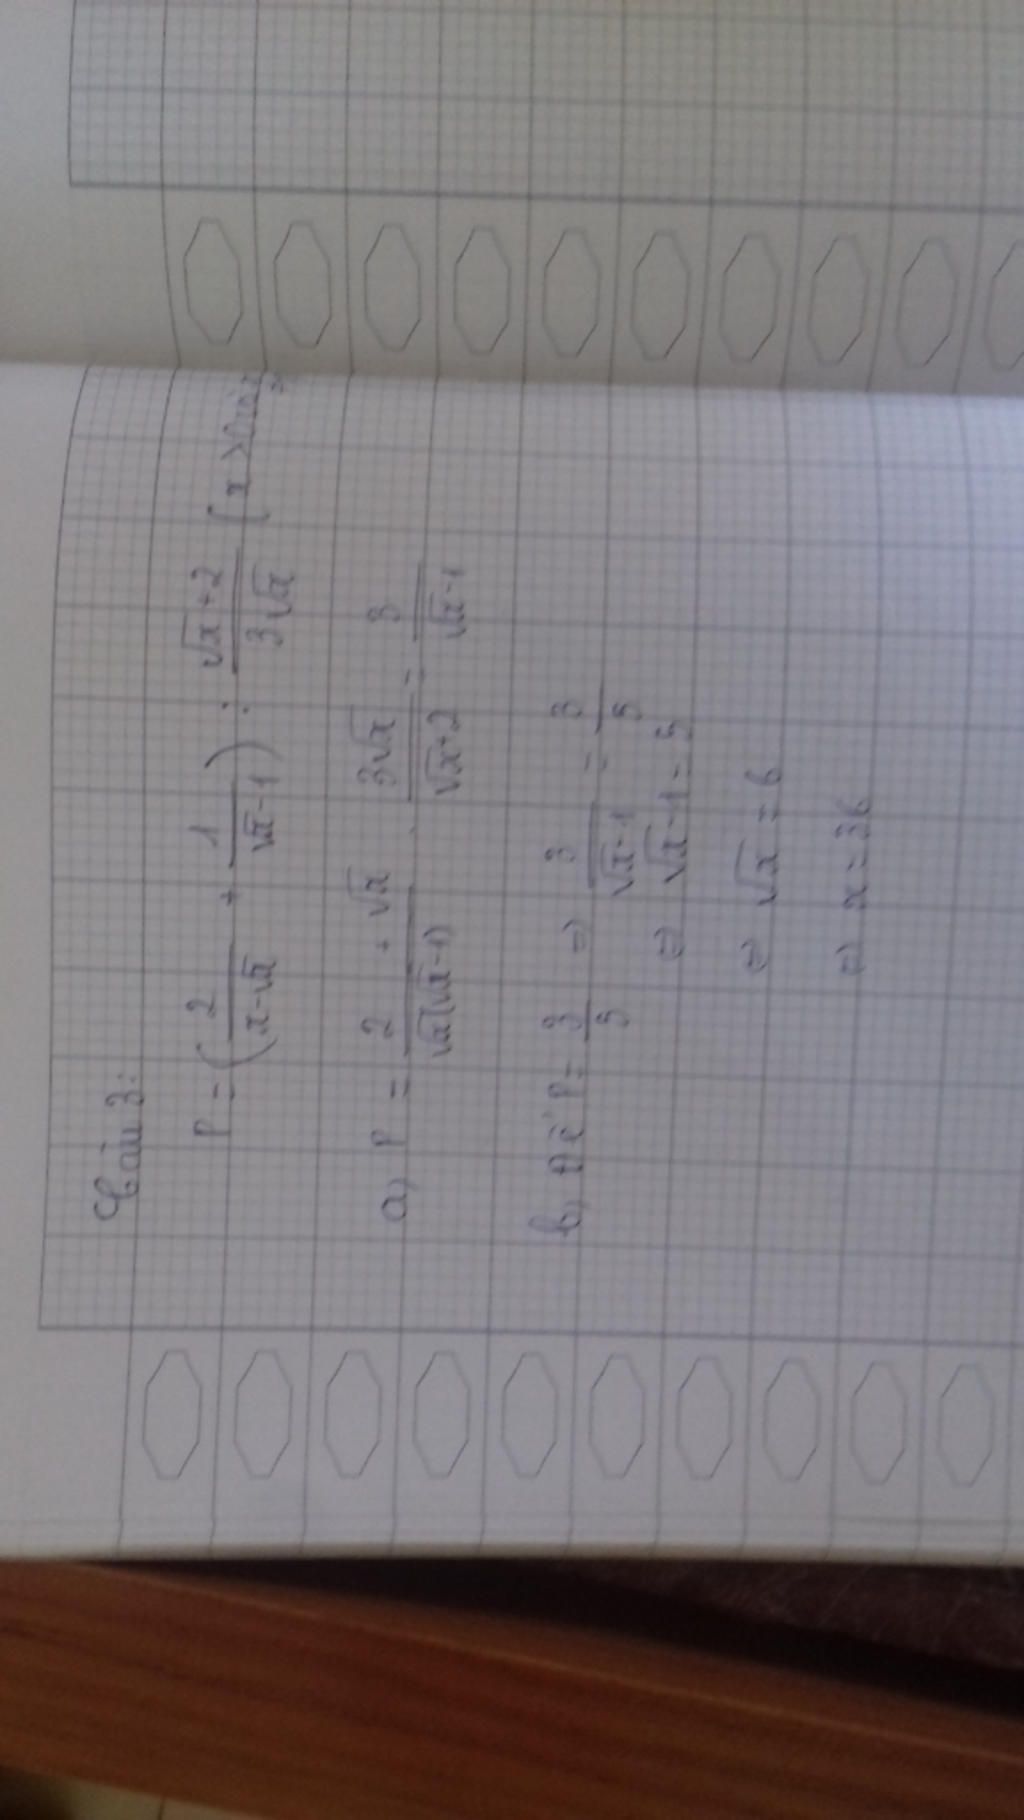 Câu 3:
P = (2/(x-√x) + 1/(√x-1)) : (√x+2)/(3√x) (x > 0
a, P = (2+√x)/(√x(√x-1)) . 3√x/(√x+2) = 3/(√x-1)
b, Để P = 3/5 ⇔ 3/(√x-1) = 3/5
⇔ √x-1 = 5
⇔ √x = 6
⇔ x = 36